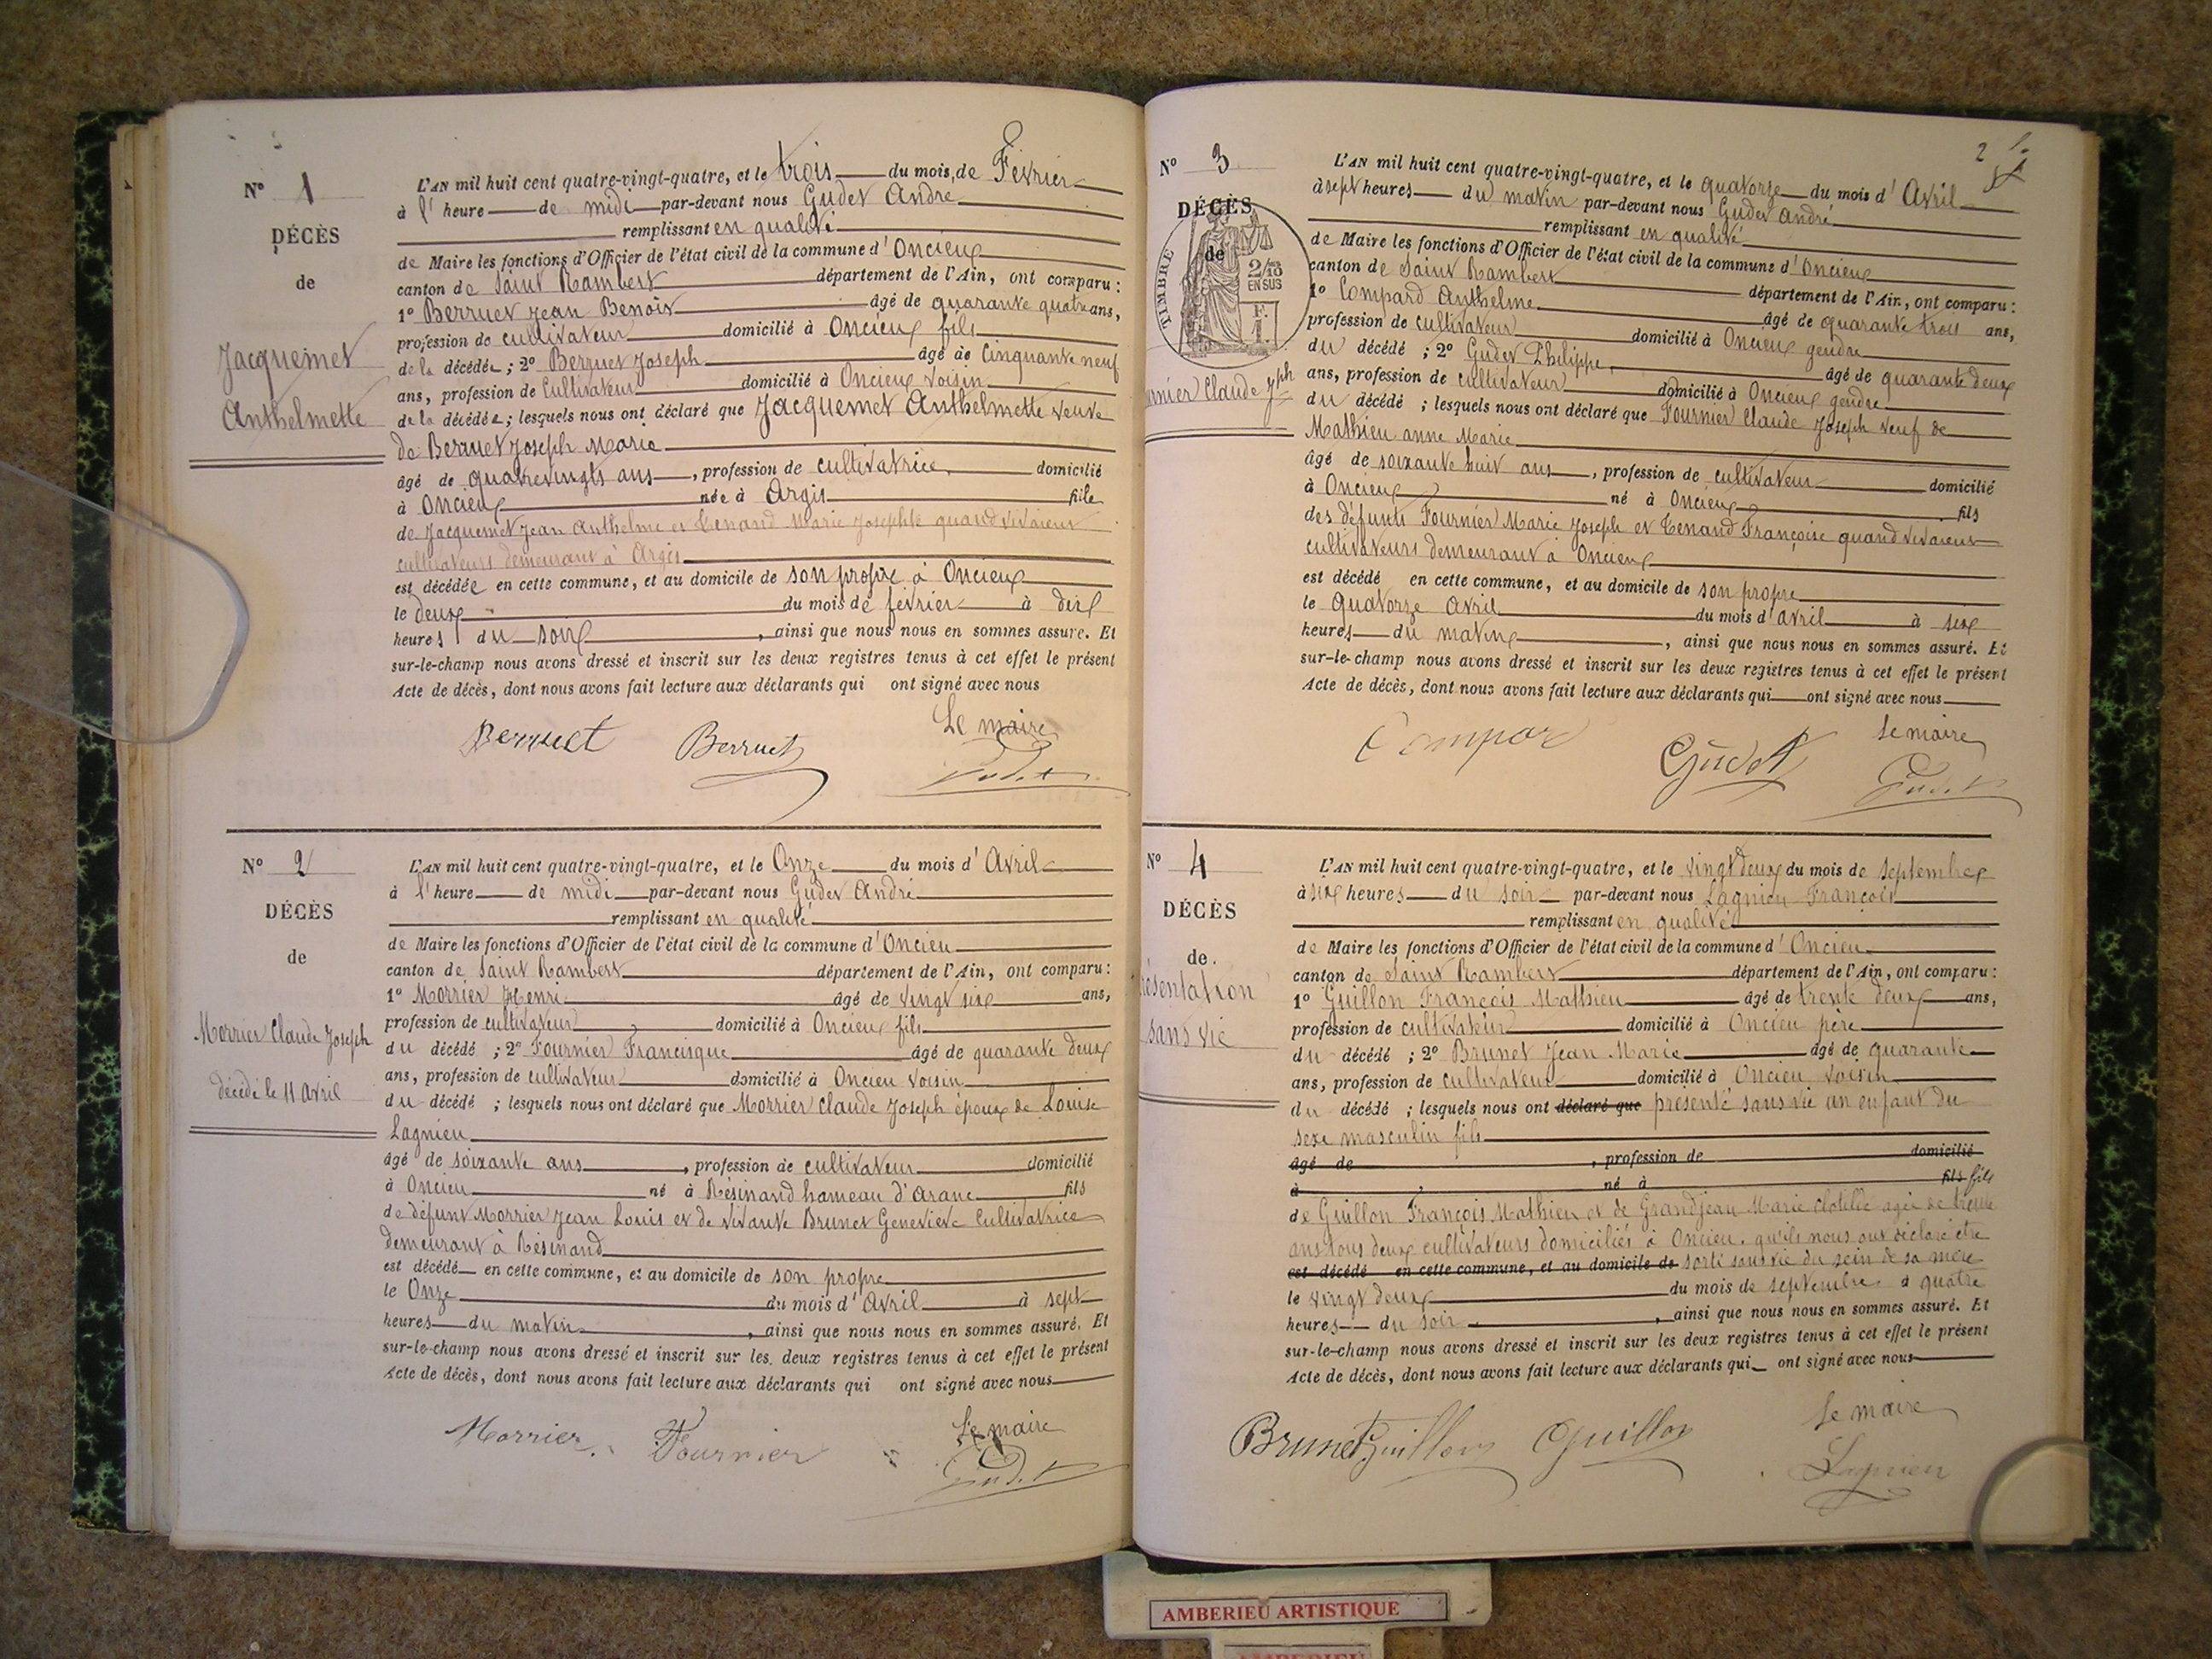 N° 1
DÉCÈS
de
Jacquemet
Anthelmette
L'AN mil huit cent quatre-vingt-quatre, et le trois du mois de Février
à l'heure de midi par-devant nous Gudet André
remplissant en qualité
de Maire les fonctions d'Officier de l'état civil de la commune d'Oncieux
canton de Saint Rambert département de l'Ain, ont comparu :
1° Berruet Jean Benoit âgé de quarante quatre ans,
profession de cultivateur domicilié à Oncieux fils
de la décédée ; 2° Berruet Joseph âgé de Cinquante neuf
ans, profession de Cultivateur domicilié à Oncieux voisin
de la décédée ; lesquels nous ont déclaré que Jacquemet Anthelmette veuve
de Berruet Joseph Marie
âgé de quatrevingts ans, profession de cultivatrice domicilié
à Oncieux née à Argis fille
de Jacquemet Jean Anthelme et Tenand Marie Josephte quand vivaient
cultivateurs demeurant à Argis
est décédée en cette commune, et au domicile de son propre à Oncieux
le deux du mois de février à dix
heures du soir, ainsi que nous nous en sommes assuré. Et
sur-le-champ nous avons dressé et inscrit sur les deux registres tenus à cet effet le présent
Acte de décès, dont nous avons fait lecture aux déclarants qui ont signé avec nous
Berruet Berruet Le maire
Gudet
N° 2
DÉCÈS
de
Morrier Claude Joseph
décédé le 11 avril
L'AN mil huit cent quatre-vingt-quatre, et le Onze du mois d'Avril
à l'heure de midi par-devant nous Gudet André
remplissant en qualité
de Maire les fonctions d'Officier de l'état civil de la commune d'Oncieu
canton de Saint Rambert département de l'Ain, ont comparu :
1° Morrier Henri âgé de vingt six ans,
profession de cultivateur domicilié à Oncieux fils
du décédé ; 2° Fournier Francisque âgé de quarante deux
ans, profession de cultivateur domicilié à Oncieu voisin
du décédé ; lesquels nous ont déclaré que Morrier Claude Joseph époux de Louise
Lagnieu
âgé de soixante ans, profession de cultivateur domicilié
à Oncieu né à Résinand hameau d'aranc fils
de défunt Morrier Jean Louis et de vivante Brunet Geneviève Cultivatrice
demeurant à Résinand
est décédé en cette commune, et au domicile de son propre
le Onze du mois d'Avril à sept
heures du matin, ainsi que nous nous en sommes assuré. Et
sur-le-champ nous avons dressé et inscrit sur les deux registres tenus à cet effet le présent
Acte de décès, dont nous avons fait lecture aux déclarants qui ont signé avec nous
Morrier Fournier Le maire
Gudet
2
N° 3
DÉCÈS
de
TIMBRE
2/10
EN SUS
F.
1.
rnier Claude Jph
L'AN mil huit cent quatre-vingt-quatre, et le quatorze du mois d'Avril
à sept heures du matin par-devant nous Gudet André
remplissant en qualité
de Maire les fonctions d'Officier de l'état civil de la commune d'Oncieux
canton de Saint Rambert département de l'Ain, ont comparu :
1° Compard Anthelme âgé de quarante trois ans,
profession de cultivateur domicilié à Oncieux gendre
du décédé ; 2° Gudet Philippe, âgé de quarante deux
ans, profession de cultivateur domicilié à Oncieux gendre
du décédé ; lesquels nous ont déclaré que Fournier Claude Joseph veuf de
Mathieu anne Marie
âgé de soixante huit ans, profession de cultivateur domicilié
à Oncieux né à Oncieux fils
des défunts Fournier Marie Joseph et Tenand Françoise quand vivaient
cultivateurs demeurant à Oncieux
est décédé en cette commune, et au domicile de son propre
le quatorze avril du mois d'avril à six
heures du matin, ainsi que nous nous en sommes assuré. Et
sur-le-champ nous avons dressé et inscrit sur les deux registres tenus à cet effet le présent
Acte de décès, dont nous avons fait lecture aux déclarants qui ont signé avec nous
Compar Gudet le maire
Gudet
N° 4
DÉCÈS
de
résentation
sans vie
L'AN mil huit cent quatre-vingt-quatre, et le vingt deux du mois de septembre
à six heures du soir par-devant nous Lagnieu François
remplissant en qualité
de Maire les fonctions d'Officier de l'état civil de la commune d'Oncieu
canton de Saint Rambert département de l'Ain, ont comparu :
1° Guillon François Mathieu âgé de trente deux ans,
profession de cultivateur domicilié à Oncieu père
du décédé ; 2° Brunet Jean Marie âgé de quarante
ans, profession de cultivateur domicilié à Oncieu voisin
du décédé ; lesquels nous ont déclaré que présenté sans vie un enfant du
sexe masculin fils
âgé de , profession de domicilié
à , né à fils fils
de Guillon François Mathieu et de Grandjean Marie Clotilde agée de trente
ans tous deux cultivateurs domiciliés à Oncieu. qu'ils nous ont déclaré être
est décédé en cette commune, et au domicile de sorti sans vie du sein de sa mère
le vingt deux du mois de septembre à quatre
heures du soir, ainsi que nous nous en sommes assuré. Et
sur-le-champ nous avons dressé et inscrit sur les deux registres tenus à cet effet le présent
Acte de décès, dont nous avons fait lecture aux déclarants qui ont signé avec nous
Brunet Guillon Guillon le maire
Lagnieu
AMBERIEU ARTISTIQUE
AMBERIEU